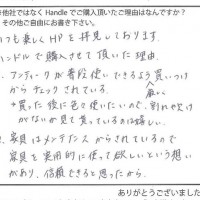 他社ではなく Handle でご購入頂いたご理由はなんですか？
その他ご自由にお書き下さい。
いつも楽しくHPを拝見しております。
ハンドルで購入させて頂いた理由。
アンティークが普段使いできるよう買いつけ
からチェックされている。
*買った後に色々使いたいので、割れや欠け
がないか見て買っているのは嬉しい。
家具はメンテナンスからされているので
家具を実用的に使って欲しいという想い
があり、信頼できると思ったから。
ありがとうございました